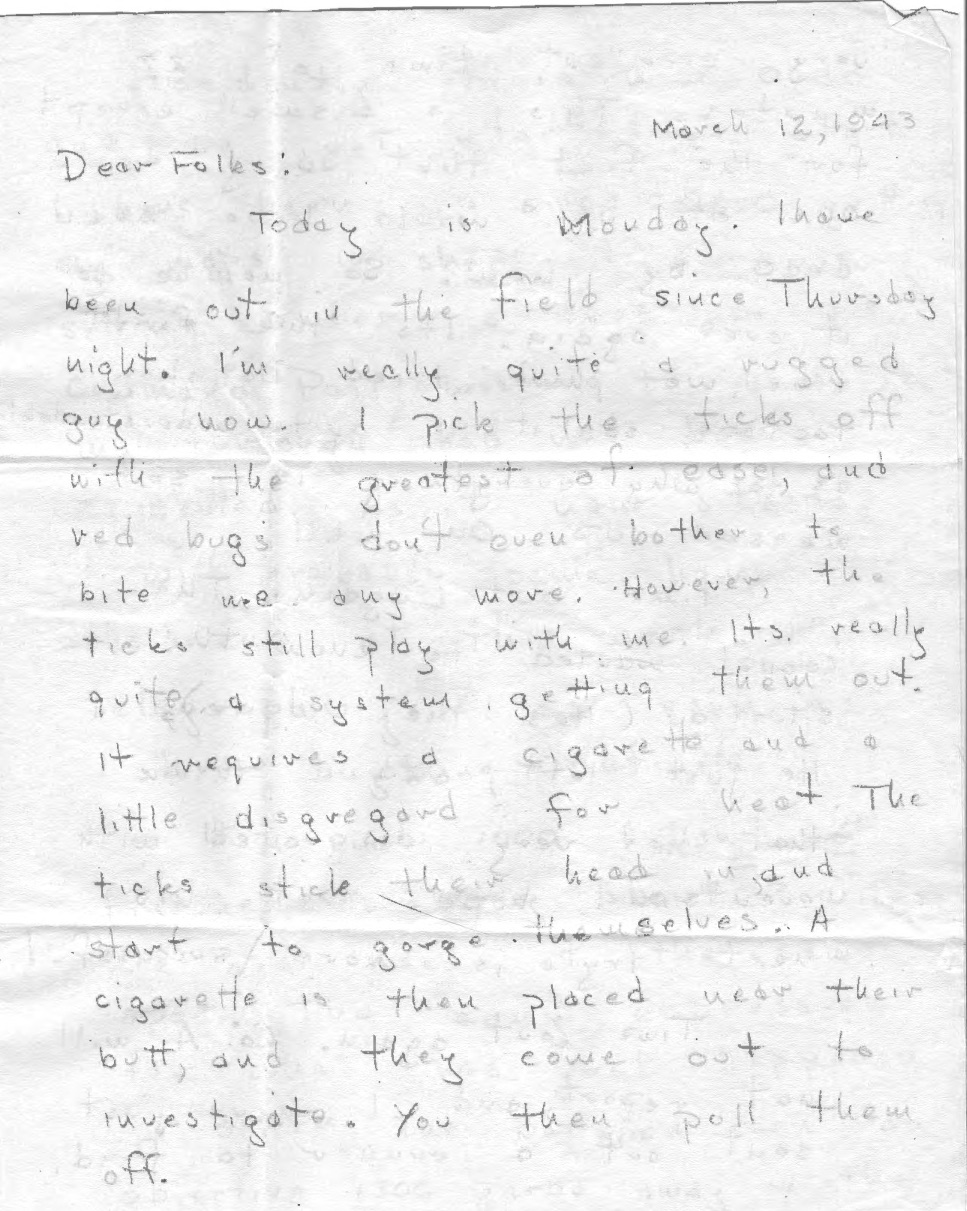 March 12, 1943
Dear Folks:
Today is Monday. I have
been out in the field since Thursday
night. I'm really quite a rugged
guy now. I pick the ticks off
with the greatest of ease, and
red bugs don't even bother to
bite me any more. However, the
ticks still play with me. Its really
quite a system getting them out.
It requires a cigarette and a
little disgregard for heat The
ticks stick their head in, and
start to gorge themselves. A
cigarette is then placed near their
butt, and they come out to
investigate. You then poll them
off.